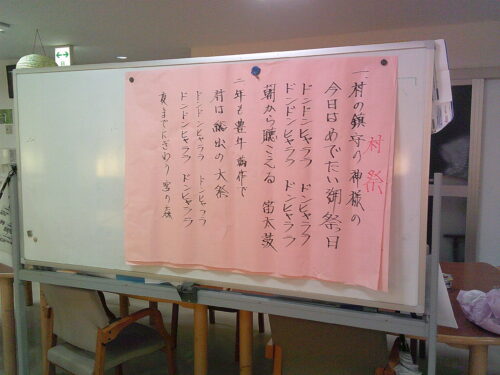 村祭
一、村の鎮守の神様の
今日はめでたい御祭日
ドンドンヒャララ ドンヒャララ
ドンドンヒャララ ドンヒャララ
朝から聴こえる 笛太鼓
二、年も豊年満作で
村は総出の大祭
ドンドンヒャララ ドンヒャララ
ドンドンヒャララ ドンヒャララ
夜までにぎわう宮の森